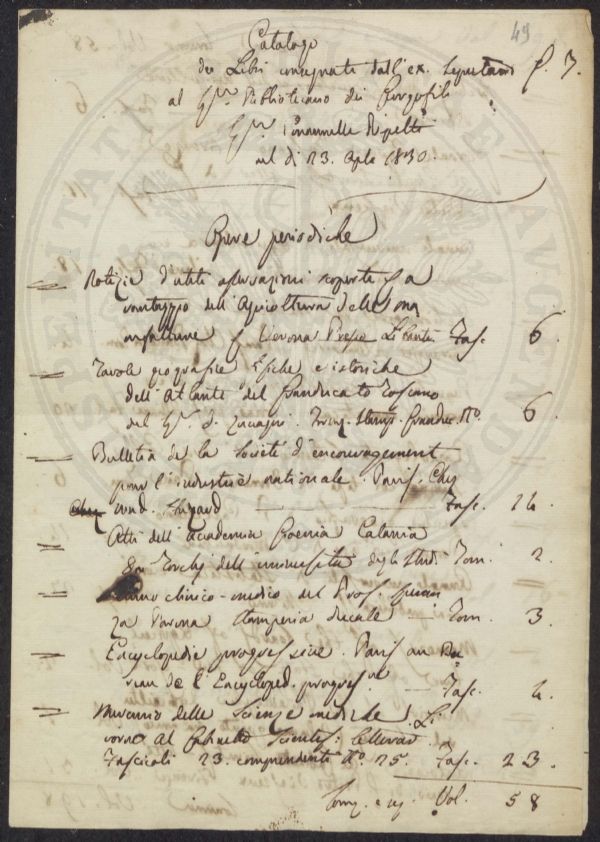 49
Catalogo
dei Libri consegnati dall'ex. Segretario P. 7.
al Sig.r Bibliotecario dei Georgofili
Sig.r Emanuelle Repetti
nel dì 23. Ag.to 1830.
Opere periodiche
Notizie d'utili osservazioni scoperte
vantaggio dell'Agricoltura delle
Verona Presso Fasc. 6.
Tavole geografie fisiche e istoriche
dell'Atlante del Granducato Toscano
del Sig. Zuccagni Stamp. Granduc. N.o 6.
Bulletin de la Société d'encouragement
pour l'industrie nationale. Paris. Chez
Mad. Huzard Fasc. 14.
Atti dell'Accademia Gioenia Catania
Torchj dell'università degli Studi Tom. 2.
clinico-medico del Prof.
Stamperia Ducale Tom. 3.
Encyclopedie progressive. Paris au Bu
reau de l'Encycloped. progres. Fasc. 4.
delle Scienze mediche. Li
vorno al Gabinetto Scientif: Letterario
Fascicoli 23. comprendenti N.o 25. Fasc. 23.
Vol. 58